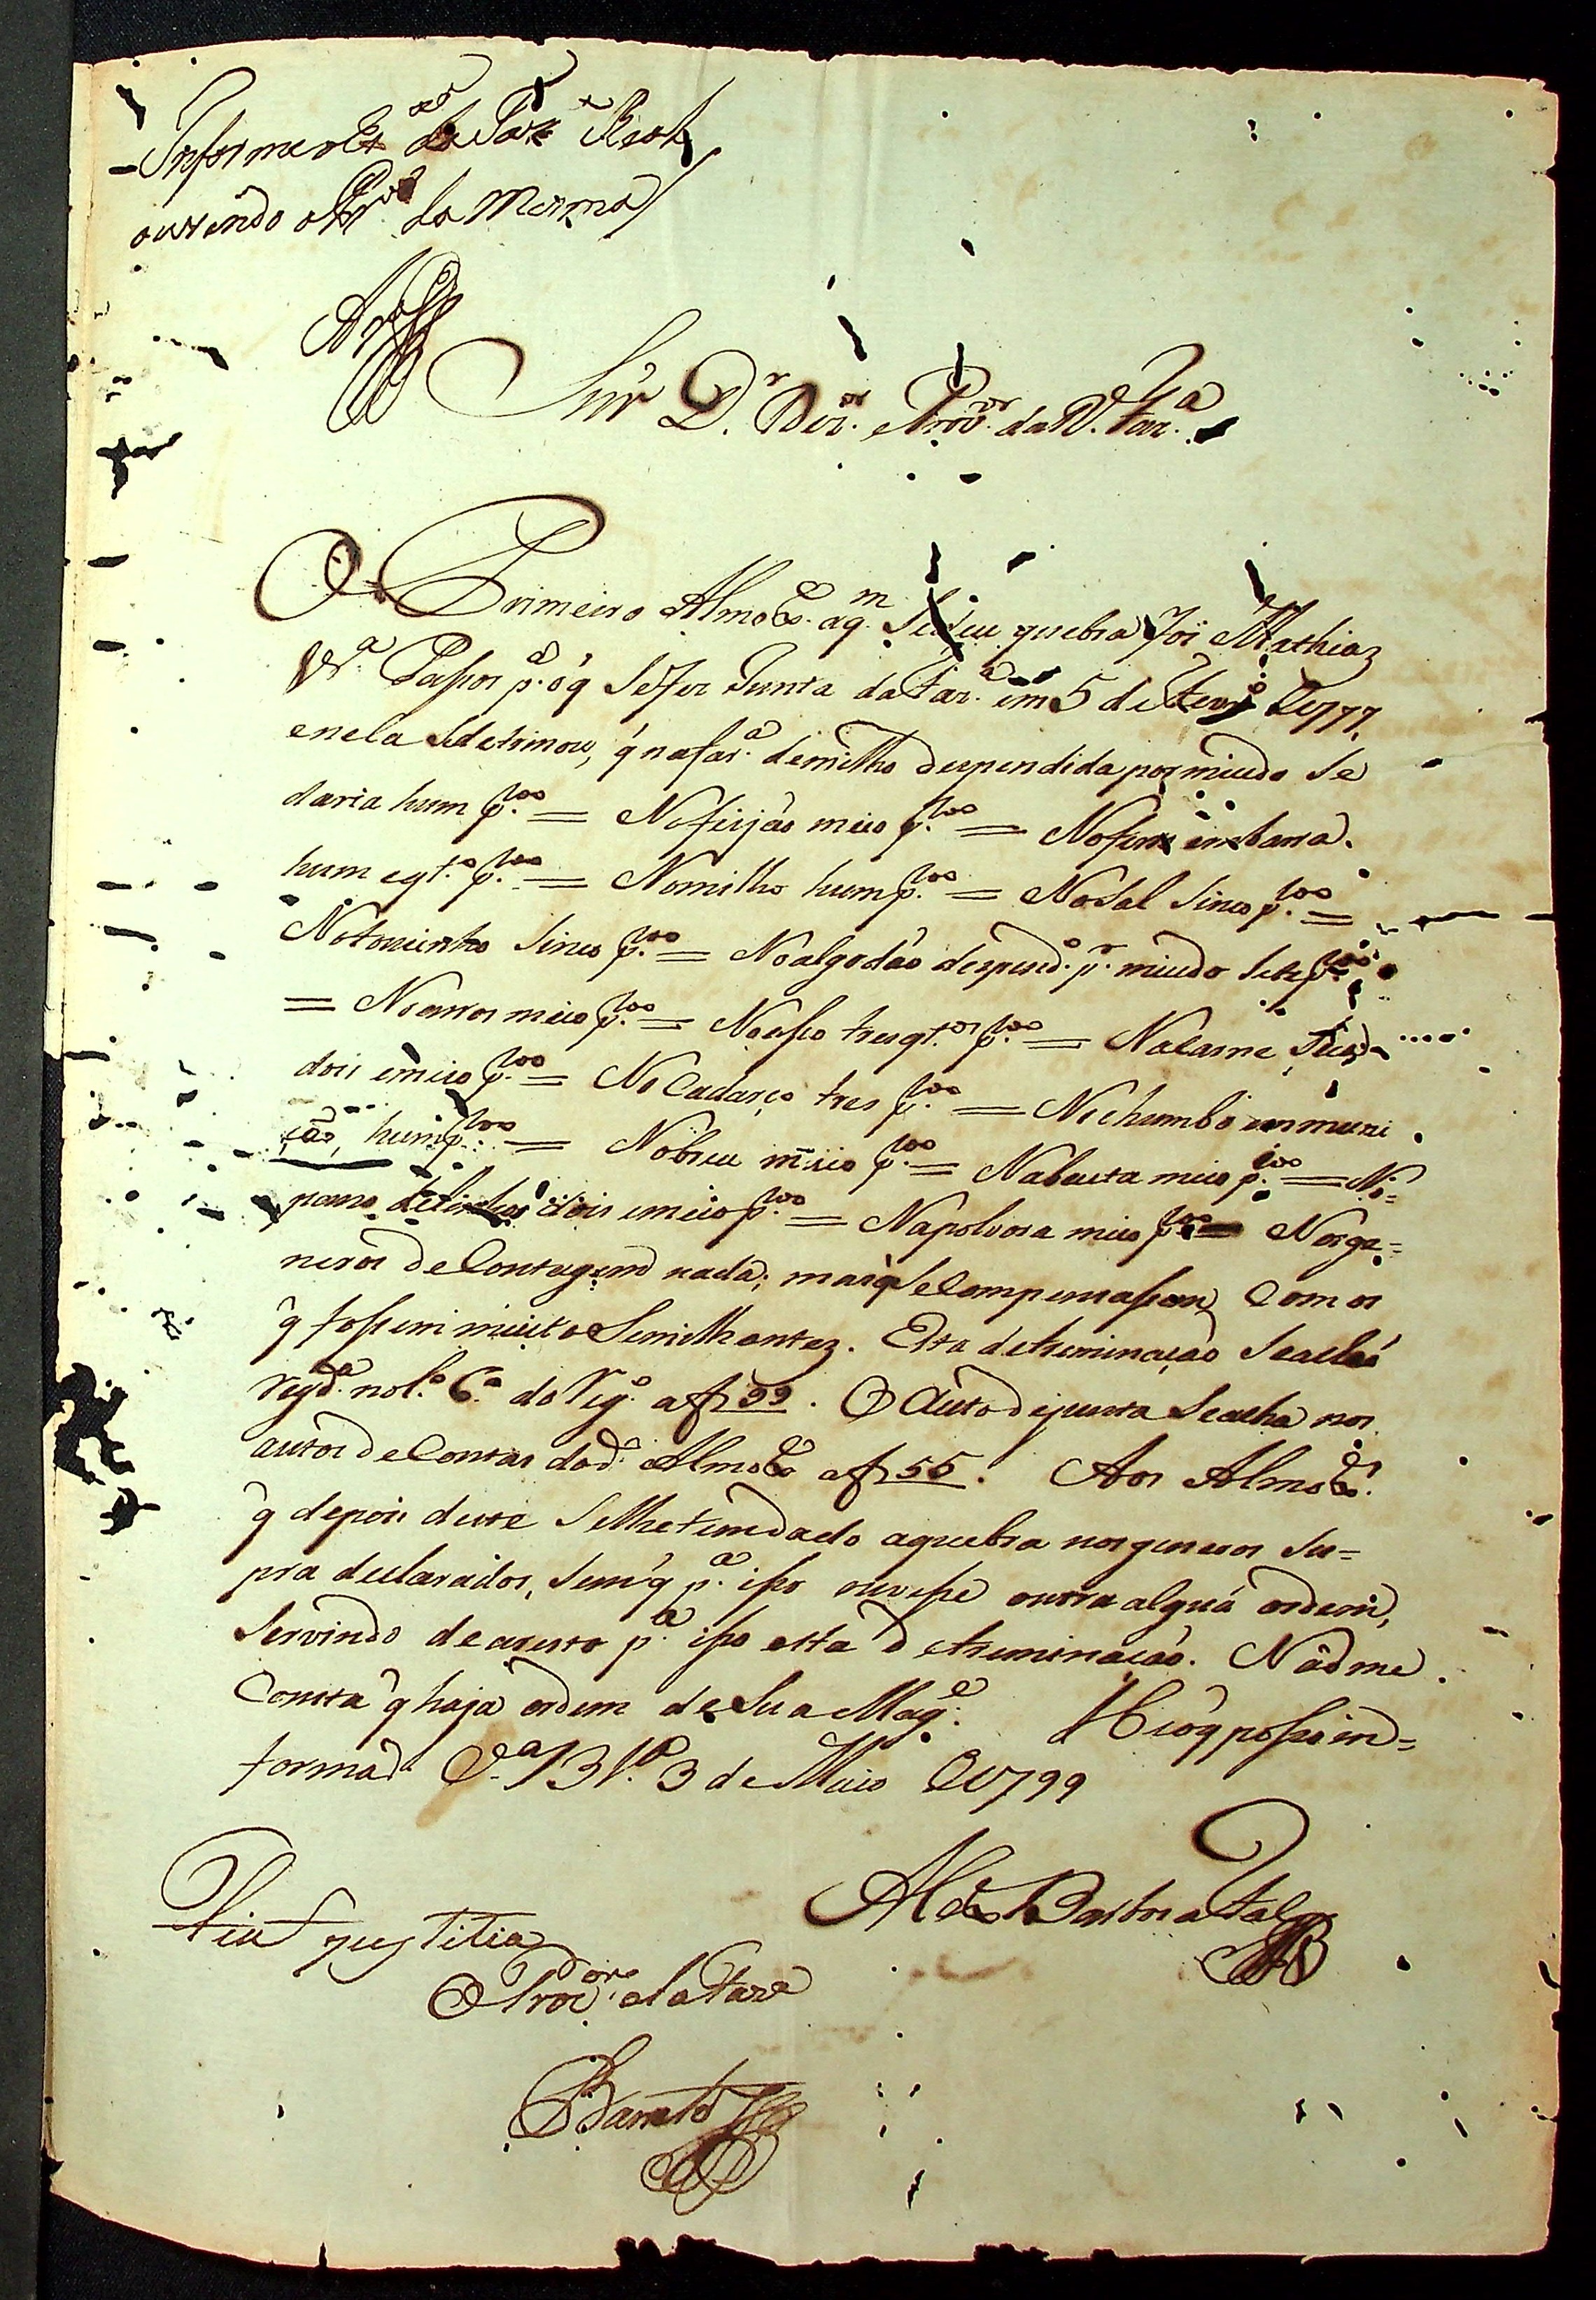 Informe o Es.am da Faz.a Real
ouvindo o Pr.or da mesma
Snr D.r Dez.or e Prov.or da R. Faz.a
O Primeiro Almox.e a q.m Se deu quebra foi Mathias
Vr.a Passos p.a o q̃ Se fez Junta da Faz.a em 5 de Fevr.o de 1777,
e nela Se detriminou, q̃ na far.a de milho despendida por miudo Se
daria hum p. 100 = No feijão meio p. 100 = No ferro em barra
hum e q.to p. 100 = No milho hum p. 100 = No Sal Sinco p. 100 =
No tousinho Sinco p. 100 = No algodão despend.o p.r miudo Sete p. 100
= No arros meio p. 100 = No asso tres q.tos p. 100 = Na carne Seca
dois e meio p. 100 = No Cadarço tres p. 100 = No chumbo em muni
ção, hum p. 100 = No breu meio p. 100 = Na baeta meio p. 100 = No =
pano de linho dois e meio p. 100 = Na polvora meio p. 100 = Nos ge =
neros de Contagem nada; mas q̃ Se Compensassem Com os
q̃ fossem muito Semilhantez. Esta detreminação Se acha
reg.da no L.o 6.o do Reg.o a f 99. O Auto de junta Se acha nos
autos de Contas do d.o Almox.e a f 55. Aos Almox.es
q̃ depois deste Se lhe tem dado a quebra nos generos Su =
pra declarados, Sem q̃ p.a isso ouvesse outra algũa ordem,
Servindo de aresto p.a isso esta detreminação. Não me
Consta q̃ haja ordem de Sua Mag.e. He o q̃ posso in =
formar. V.a B.a 3 de Maio de 1799
Fiat justitia
O Proc.dor da Faze
Barreto